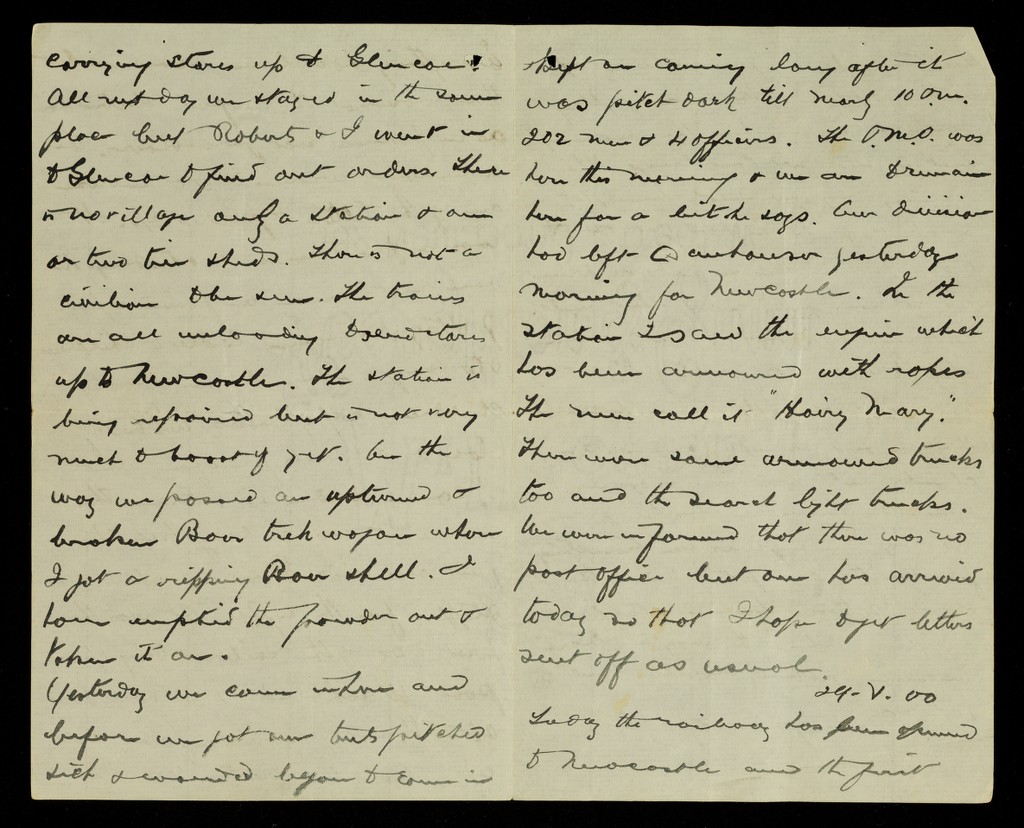 carrying stores up to Glencoe!
All next day we stayed in the same
place but Roberts & I went in
to Glencoe to find out orders. There
is no village only a station & one
or two tin sheds. There is not a
civilian to be seen. The trains
are all unloading to send stores
up to Newcastle. The station is
being repaired but is not very
much to boast of yet. On the
way we passed an upturned &
broken Boer trek wagon where
I got a ripping Boer shell. I
have emptied the powder out &
taken it on.
Yesterday we came in here and
before we got our tents pitched
sick & wounded began to come in
kept on coming long after it
was pitch dark till nearly 10 p.m.
202 men & 4 officers. The P.M.O. was
here this morning & we are to remain
here for a bit he says. Our division
had left Dannhauser yesterday
morning for Newcastle. In the
station I saw the engine which
has been armoured with ropes
The men call it "Hairy Mary."
There were some armoured trucks
too and the search light trucks.
We were informed that there was no
post office but one has arrived
today so that I hope to get letters
sent off as usual.
29-V.00
Today the railway has been opened
to Newcastle and the first